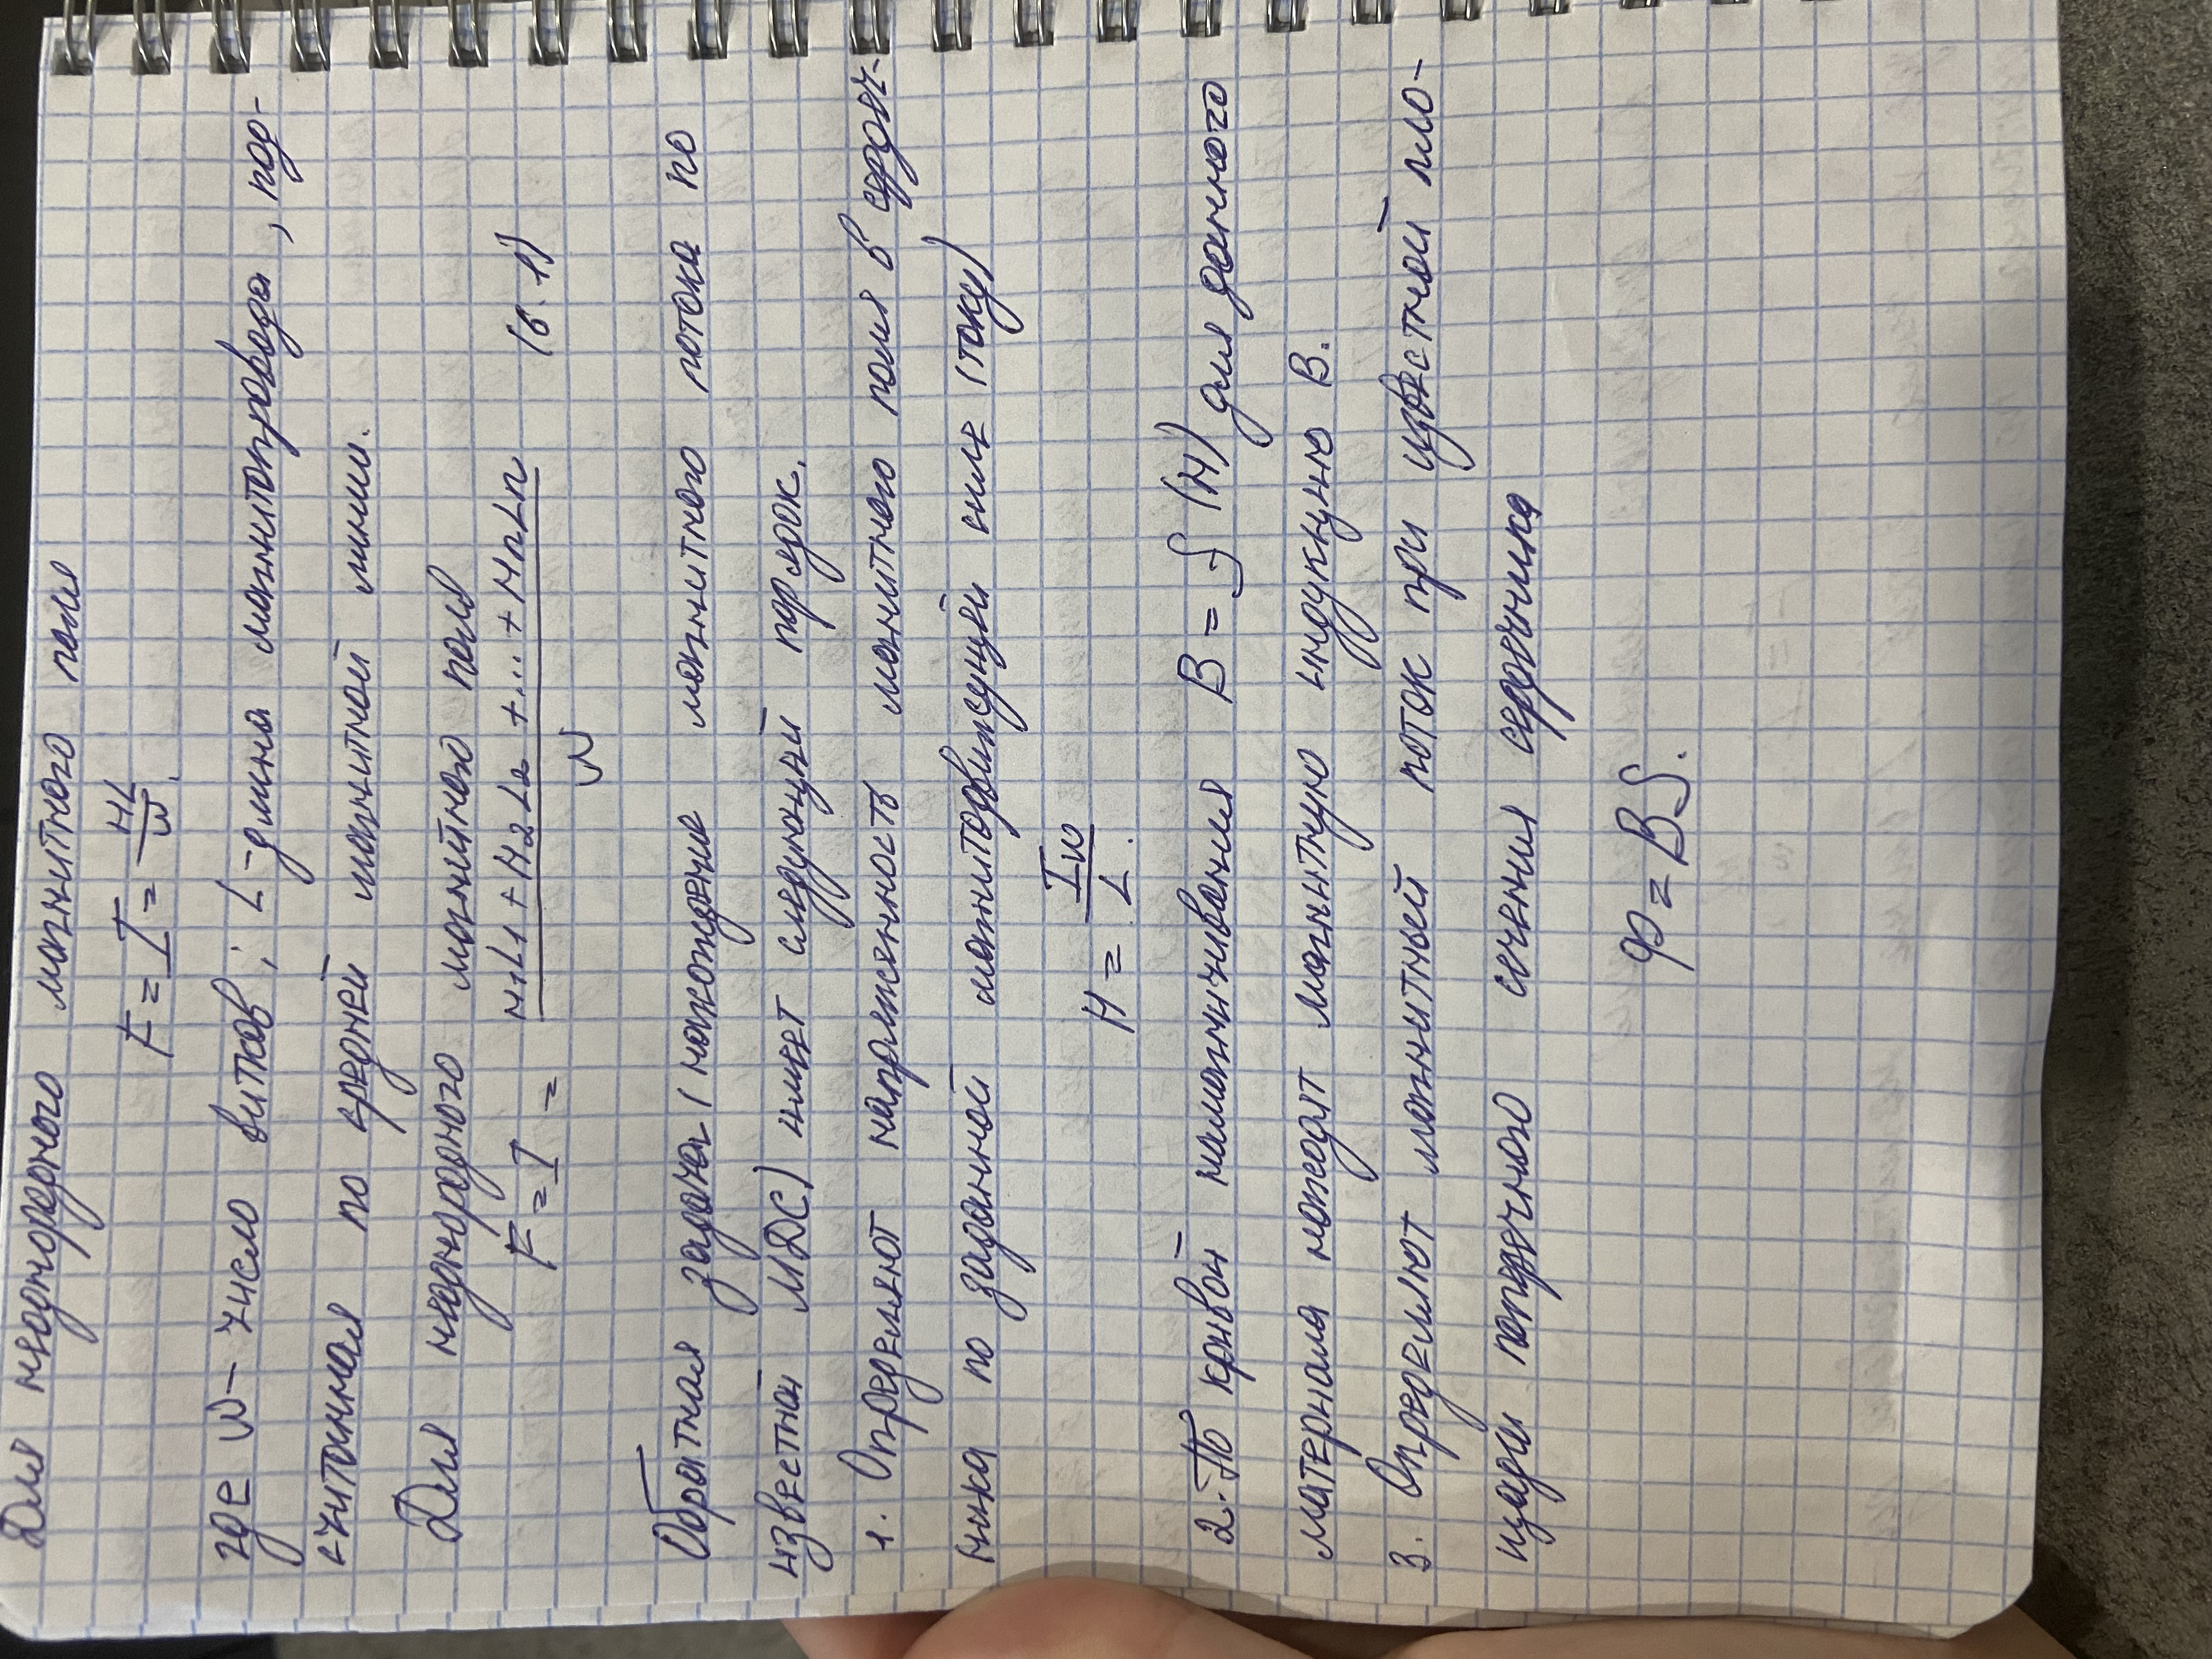 Для неоднородного магнитного поля
F = I = HL/w.
где W – число витков; L – длина магнитопровода, под-
считанная по средней магнитной линии.
Для неоднородного магнитного поля
F = I = H1L1 + H2L2 + .... + HnLn / W (6.1)
Обратная задача (нахождение магнитного потока по
известной МДС) имеет следующий порядок.
1. Определяют напряженность магнитного поля в сердеч-
ника по заданной магнитодвижущей силе (току)
H = Iw/L.
2. По кривой намагничивания B = f (H) для данного
материала находят магнитную индукцию B.
3. Определяют магнитный поток при известной пло-
щади поперечного сечения сердечника
Ф = BS.